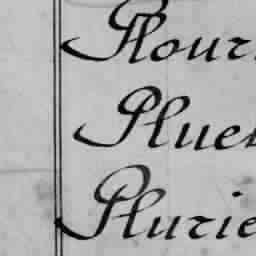 Plour
Pluel
Plurie